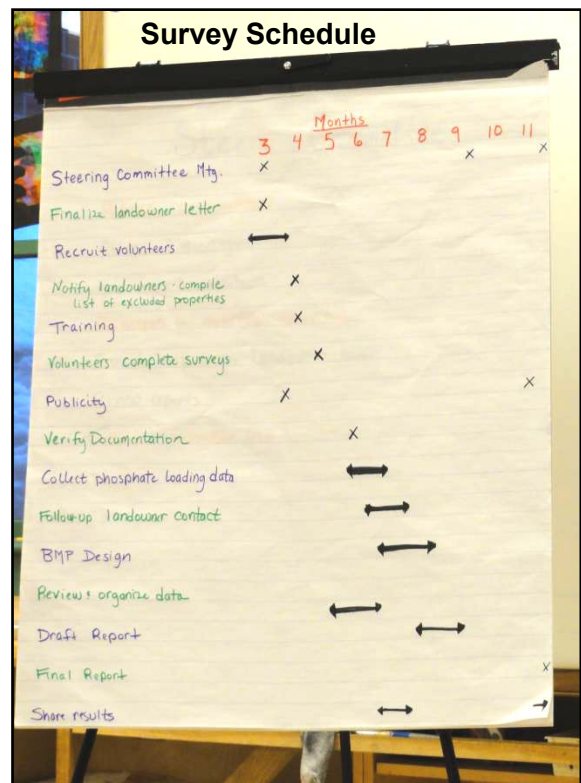 Survey Schedule
Months
3 4 5 6 7 8 9 10 11
Steering Committee Mtg. x x x
Finalize landowner letter x
Recruit volunteers
Notify landowners - compile x
list of excluded properties
Training x
Volunteers complete surveys x
Publicity x x
Verify Documentation x
Collect phosphate loading data
Follow-up landowner contact
BMP Design
Review & organize data
Draft Report
Final Report x
Share results